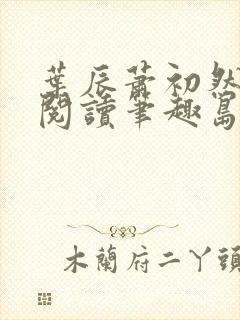 葉辰蕭初然
閱讀筆趣島
木蘭府二丫頭